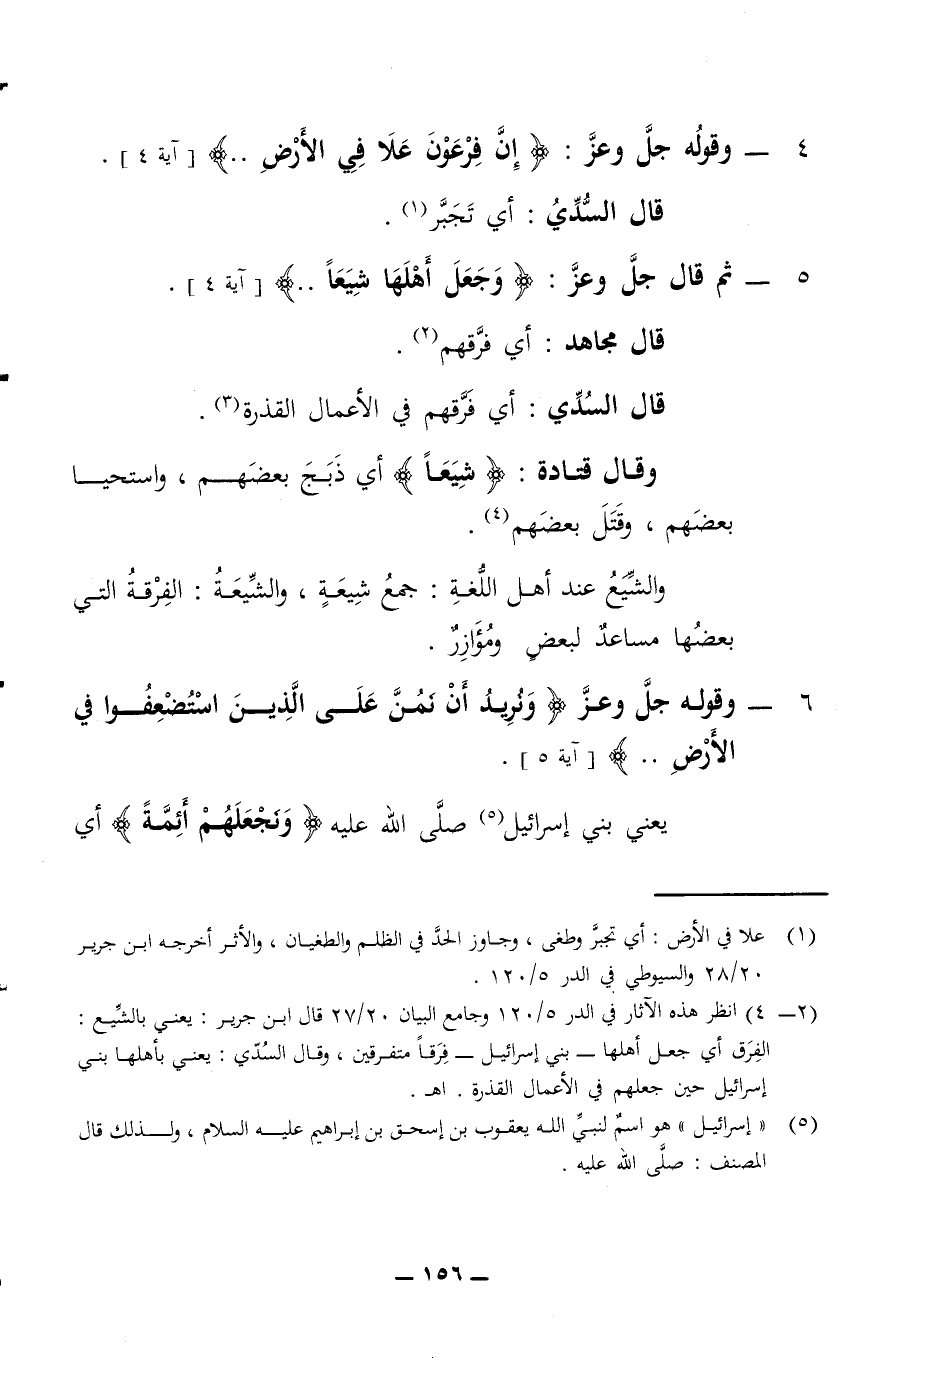 ٤ ــ وقولُه جلَّ وعزَّ : ﴿ إِنَّ فِرْعَوْنَ عَلَا فِي الأَرْضِ ..﴾ [ آية ٤ ] .
قال السُّدِّيُ : أي تَجَبَّر(١) .
٥ ــ ثم قال جلَّ وعزَّ : ﴿ وَجَعَلَ أَهْلَهَا شِيَعَاً ..﴾ [ آية ٤ ] .
قال مجاهد : أي فرَّقهم(٢) .
قال السُدِّي : أي فَرَّقهم في الأعمال القذرة(٣) .
وقـال قتـادة : ﴿ شِيَعَـاً ﴾ أي ذَبَـحَ بعضَهـــم ، واستحيـــا
بعضَهم ، وقَتَلَ بعضَهم(٤) .
والشِّيَعُ عند أهـل اللُّغةِ : جمعُ شِيعَـةٍ ، والشِّيعَـةُ : الفِرْقـةُ التـي
بعضُها مساعدٌ لبعضٍ ومُؤَازِرٌ .
٦ ــ وقولـه جلَّ وعـزَّ ﴿ وَنُرِيـدُ أَنْ نَمُـنَّ عَلَــى الَّذِيــنَ اسْتُضْعِفُــوا في
الأَرْضِ .. ﴾ [ آية ٥ ] .
يعني بني إسرائيل(٥) صلَّى الله عليه ﴿ وَنَجْعَلَهُــمْ أَئِمَّــةً ﴾ أي
(١) علا في الأرض : أي تجبرَّ وطغى ، وجـاوز الحدَّ في الظلـم والطغيـان ، والأثـر أخرجـه ابـن جريـر
٢٨/٢٠ والسيوطي في الدر ١٢٠/٥ .
(٢ــ ٤) انظر هذه الآثار في الدر ١٢٠/٥ وجامع البيان ٢٧/٢٠ قال ابـن جريـر : يعنـي بالشِّيَـع :
الفِرَق أي جعـل أهلها ــ بني إسرائيـل ــ فِرَقـاً متفـرقين ، وقـال السُدّي : يعنـي بأهلهـا بنـي
إسرائيل حين جعلهم في الأعمال القذرة . اهـ .
(٥) « إسرائيـل » هو اسمٌ لنبـيِّ اللـه يعقـوب بن إسحـق بن إبـراهيم عليـــه السلام ، ولـــذلك قال
المصنف : صلَّى الله عليه .
ــ ١٥٦ ــ